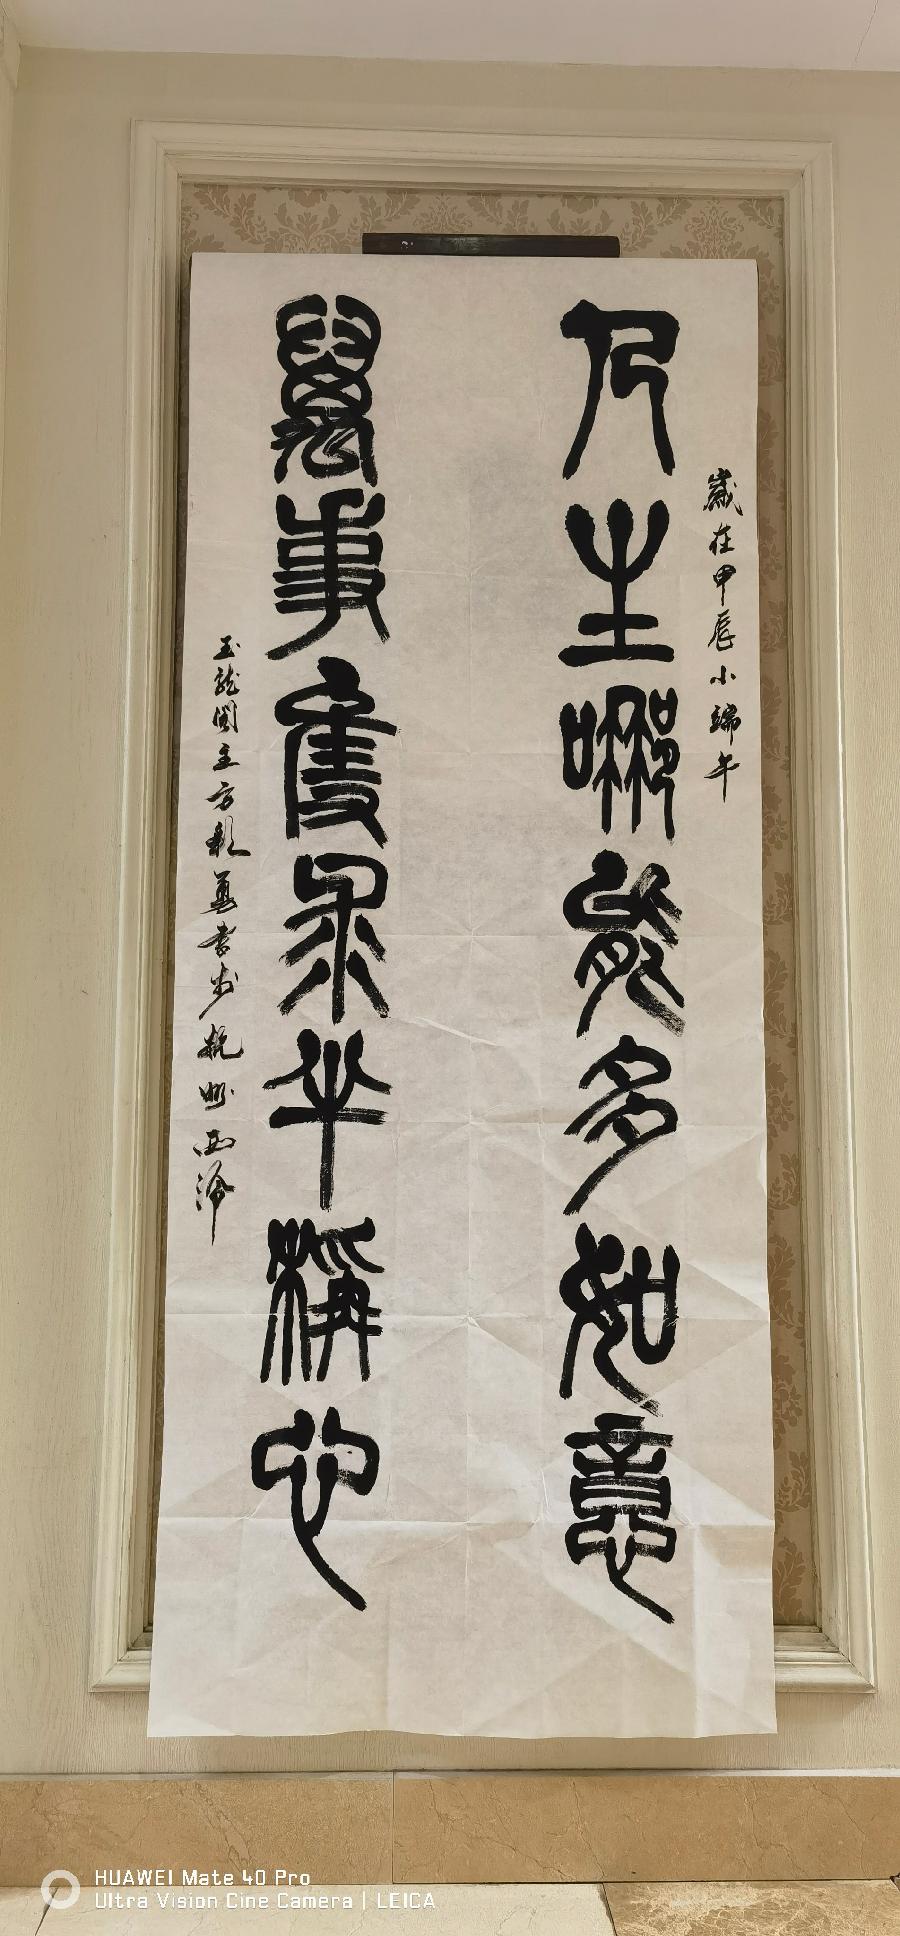 歲在甲辰小端午
凡生哪能多如意
萬事隻求半稱心
玉龍閣主方
書於杭州西泠
HUAWEI Mate 40 Pro
Ultra Vision Cine Camera | LEICA